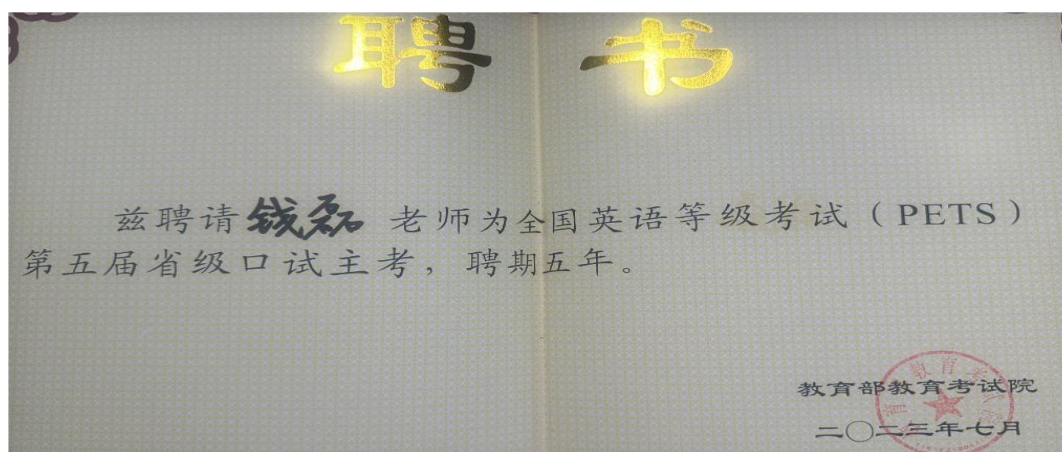 聘 书
兹聘请钱磊 老师为全国英语等级考试（PETS）
第五届省级口试主考，聘期五年。
教育部教育考试院
二〇二三年七月